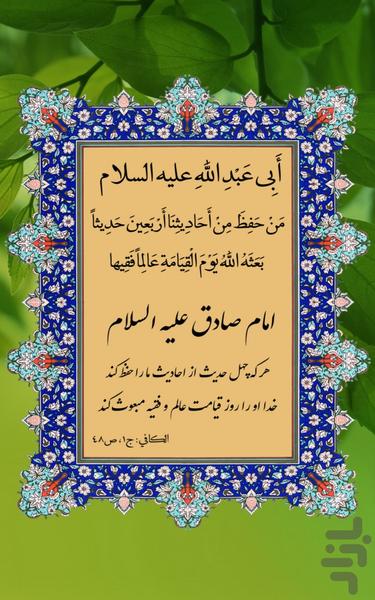 أَبِي عَبْدِ اللّٰهِ علیه السلام
مَنْ حَفِظَ مِنْ أَحَادِيثِنَا أَرْبَعِينَ حَدِيثاً
بَعَثَهُ اللّٰهُ يَوْمَ الْقِيَامَةِ عَالِماً فَقِيهاً
امام صادق علیه السلام
هر که چهل حدیث از احادیث ما را حفظ کند
خدا او را روز قیامت عالم و فقیه مبعوث کند
الکافي: ج۱، ص۴۸
بازار